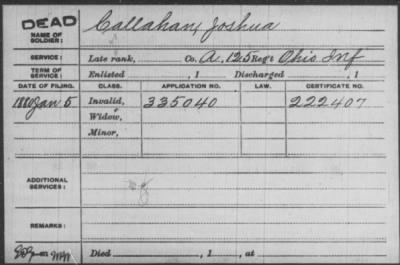 DEAD
NAME OF SOLDIER: Callahan, Joshua
SERVICE: Late rank, Co. A. 125 Reg't Ohio Inf
TERM OF SERVICE: Enlisted , 1 Discharged , 1
DATE OF FILING. CLASS. APPLICATION NO. LAW. CERTIFICATE NO.
1880 Jan 5 Invalid, 335040 222407
Widow,
Minor,
ADDITIONAL SERVICES:
REMARKS:
Died , 1 , at